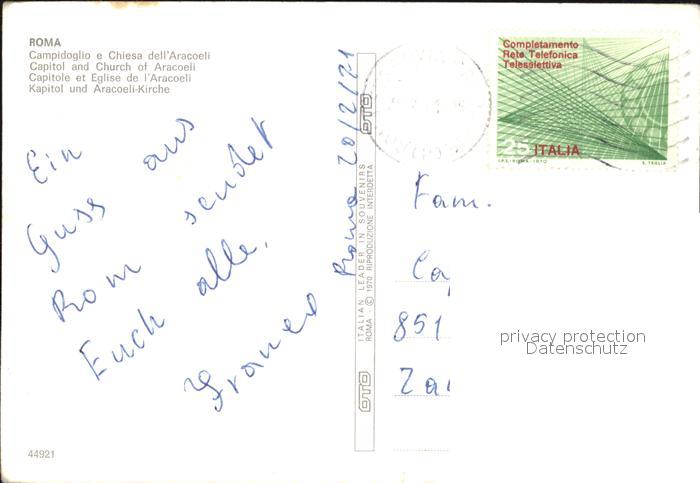 ROMA
Campidoglio e Chiesa dell'Aracoeli
Capitol and Church of Aracoeli
Capitole et Eglise de l'Aracoeli
Kapitol und Aracoeli-Kirche
Ein
Guss aus
Rom sendet
Euch alle.
Franco
Roma 20/2/71
OTO
ITALIAN LEADER IN SOUVENIRS
ROMA - © 1970 RIPRODUZIONE INTERDETTA
OTO
Completamento
Rete Telefonica
Teleselettiva
25 ITALIA
I.P.S.-ROMA-1970
Fam.
851
privacy protection
Datenschutz
44921